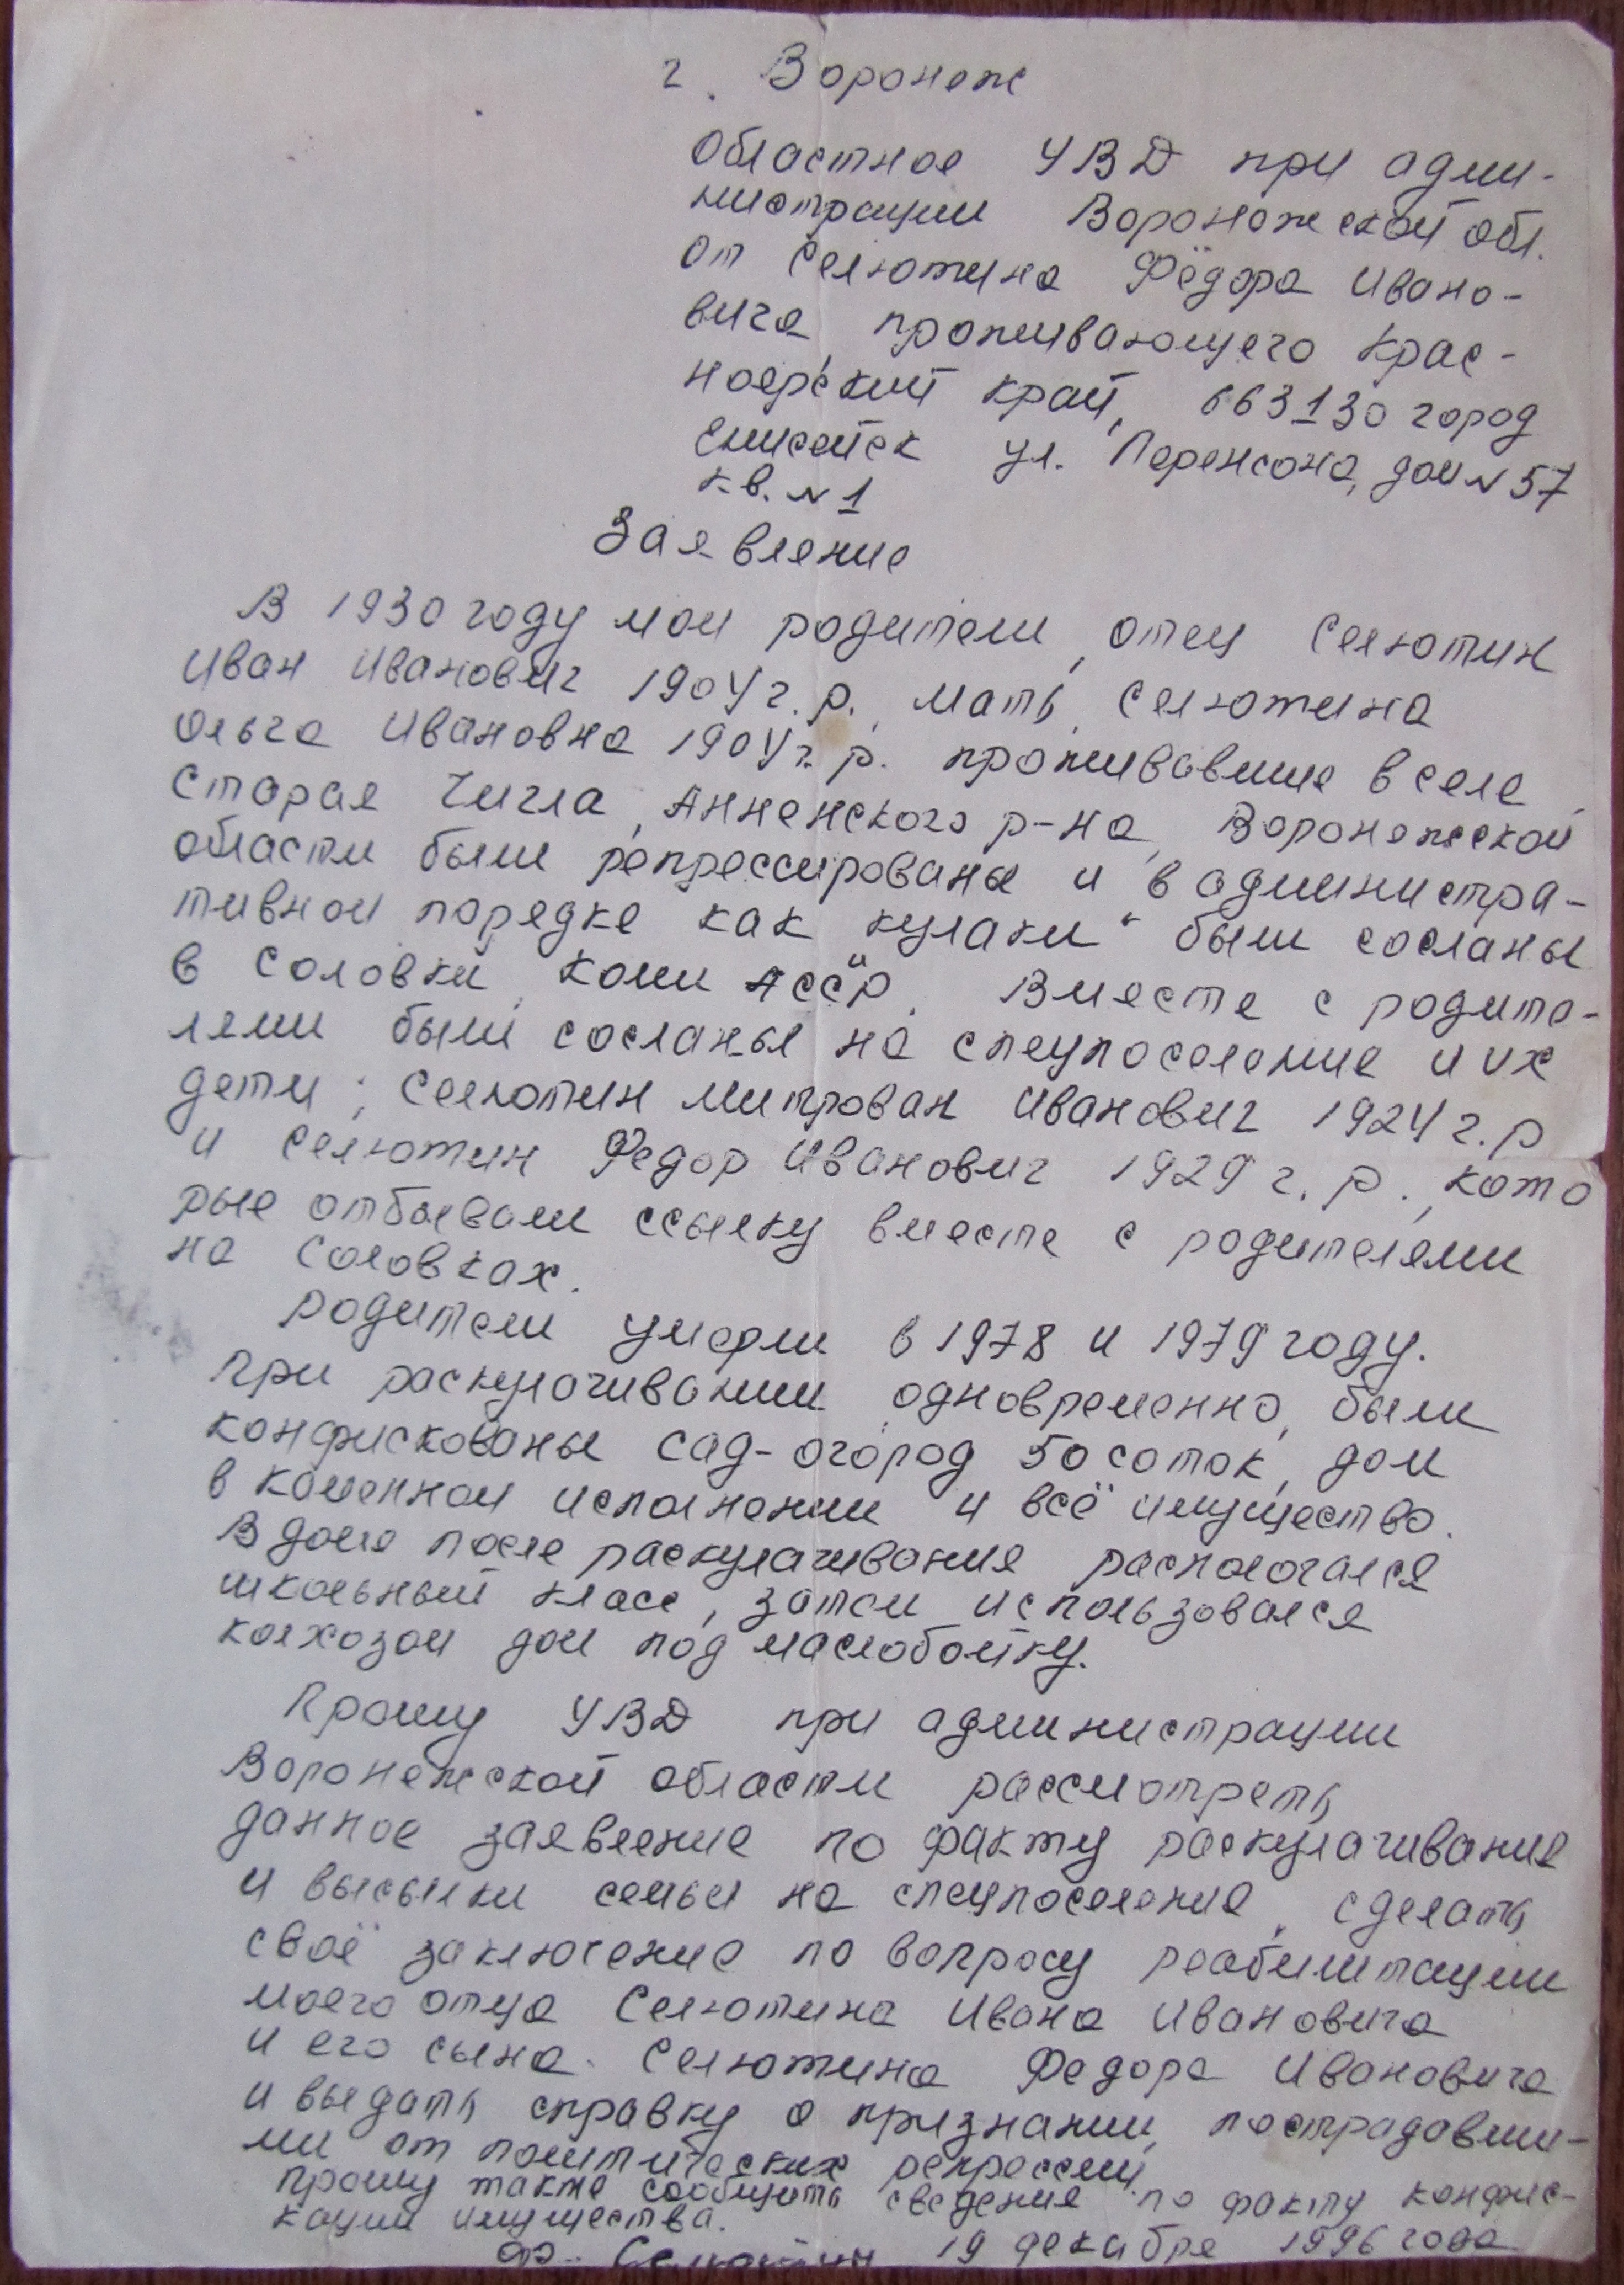 г. Воронеж
Областное УВД при адми-
нистрации Воронежской обл.
от Селютина Фёдора Ивано-
вича проживающего Крас-
ноярский край, 663130 город
Енисейск ул. Перенсона, дом № 57
кв. № 1
Заявление
В 1930 году мои родители, отец Селютин
Иван Иванович 1904 г. р., мать Селютина
Ольга Ивановна 1904 г. р. проживавшие в селе
Старая Чигла, Анненского р-на, Воронежской
области были репрессированы и в администра-
тивном порядке как кулаки" были сосланы
в Соловки, Коми АССР. Вместе с родите-
лями были сосланы на спецпоселение и их
дети; Селютин Митрован Иванович 1924 г. р
и Селютин Федор Иванович 1929 г. р., кото
рые отбывали ссылку вместе с родителями
на Соловках.
Родители умерли в 1978 и 1979 году.
При раскулачивании одновременно, были
конфискованы сад-огород 50 соток, дом
в каменном исполнении и всё имущество.
В доме после раскулачивания распологался
школьный класс, затем использовался
колхозом дом под маслобойку.
Прошу УВД при администрации
Воронежской области рассмотреть
данное заявление по факту раскулачивания
и высылки семьи на спецпоселение, сделать
своё заключение по вопросу реабилитации
моего отца Селютина Ивана Ивановича
и его сына. Селютина Федора Ивановича
и выдать справку о признании, пострадавши-
ми от политических репрессий.
Прошу также сообщить сведения по факту конфис-
кации имущества.
Ф. Селютин 19 декабря 1996 года